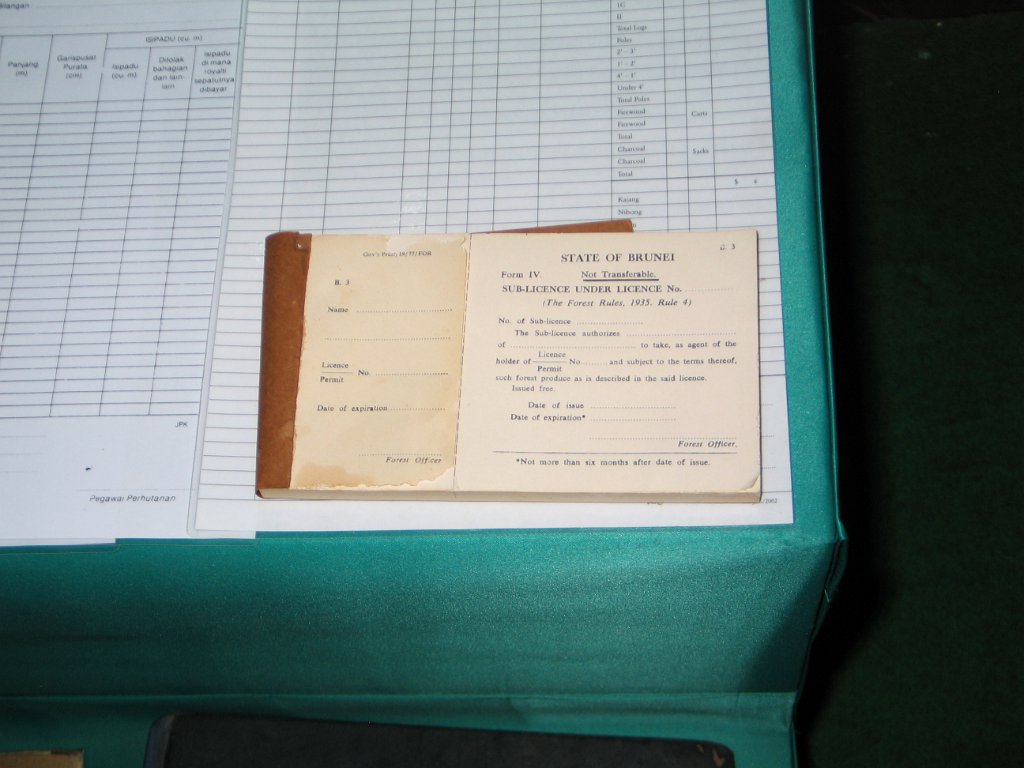 Bilangan
ISIPADU (cu. m)
Panjang
(m)
Garispusat
Purata
(cm)
Isipadu
(cu. m)
Ditolak
bahagian
dan lain-
lain
Isipadu
di mana
royalti
sepatutnya
dibayar
JPK
Pegawai Perhutanan
IG
II
Total Logs
Poles
2' - 3'
1' - 2'
4' - 1'
Under 4'
Total Poles
Firewood
Firewood Carts
Total
Charcoal Sacks
Charcoal
Total
$ ¢
Kajang
Nibong
B. 3
Name
Licence
Permit No.
Date of expiration
Forest Officer
B. 3
STATE OF BRUNEI
Form IV. Not Transferable.
SUB-LICENCE UNDER LICENCE No.
(The Forest Rules, 1935. Rule 4)
No. of Sub-licence
The Sub-licence authorizes
of to take, as agent of the
holder of Licence
Permit No. and subject to the terms thereof,
such forest produce as is described in the said licence.
Issued free.
Date of issue
Date of expiration*
Forest Officer.
*Not more than six months after date of issue.